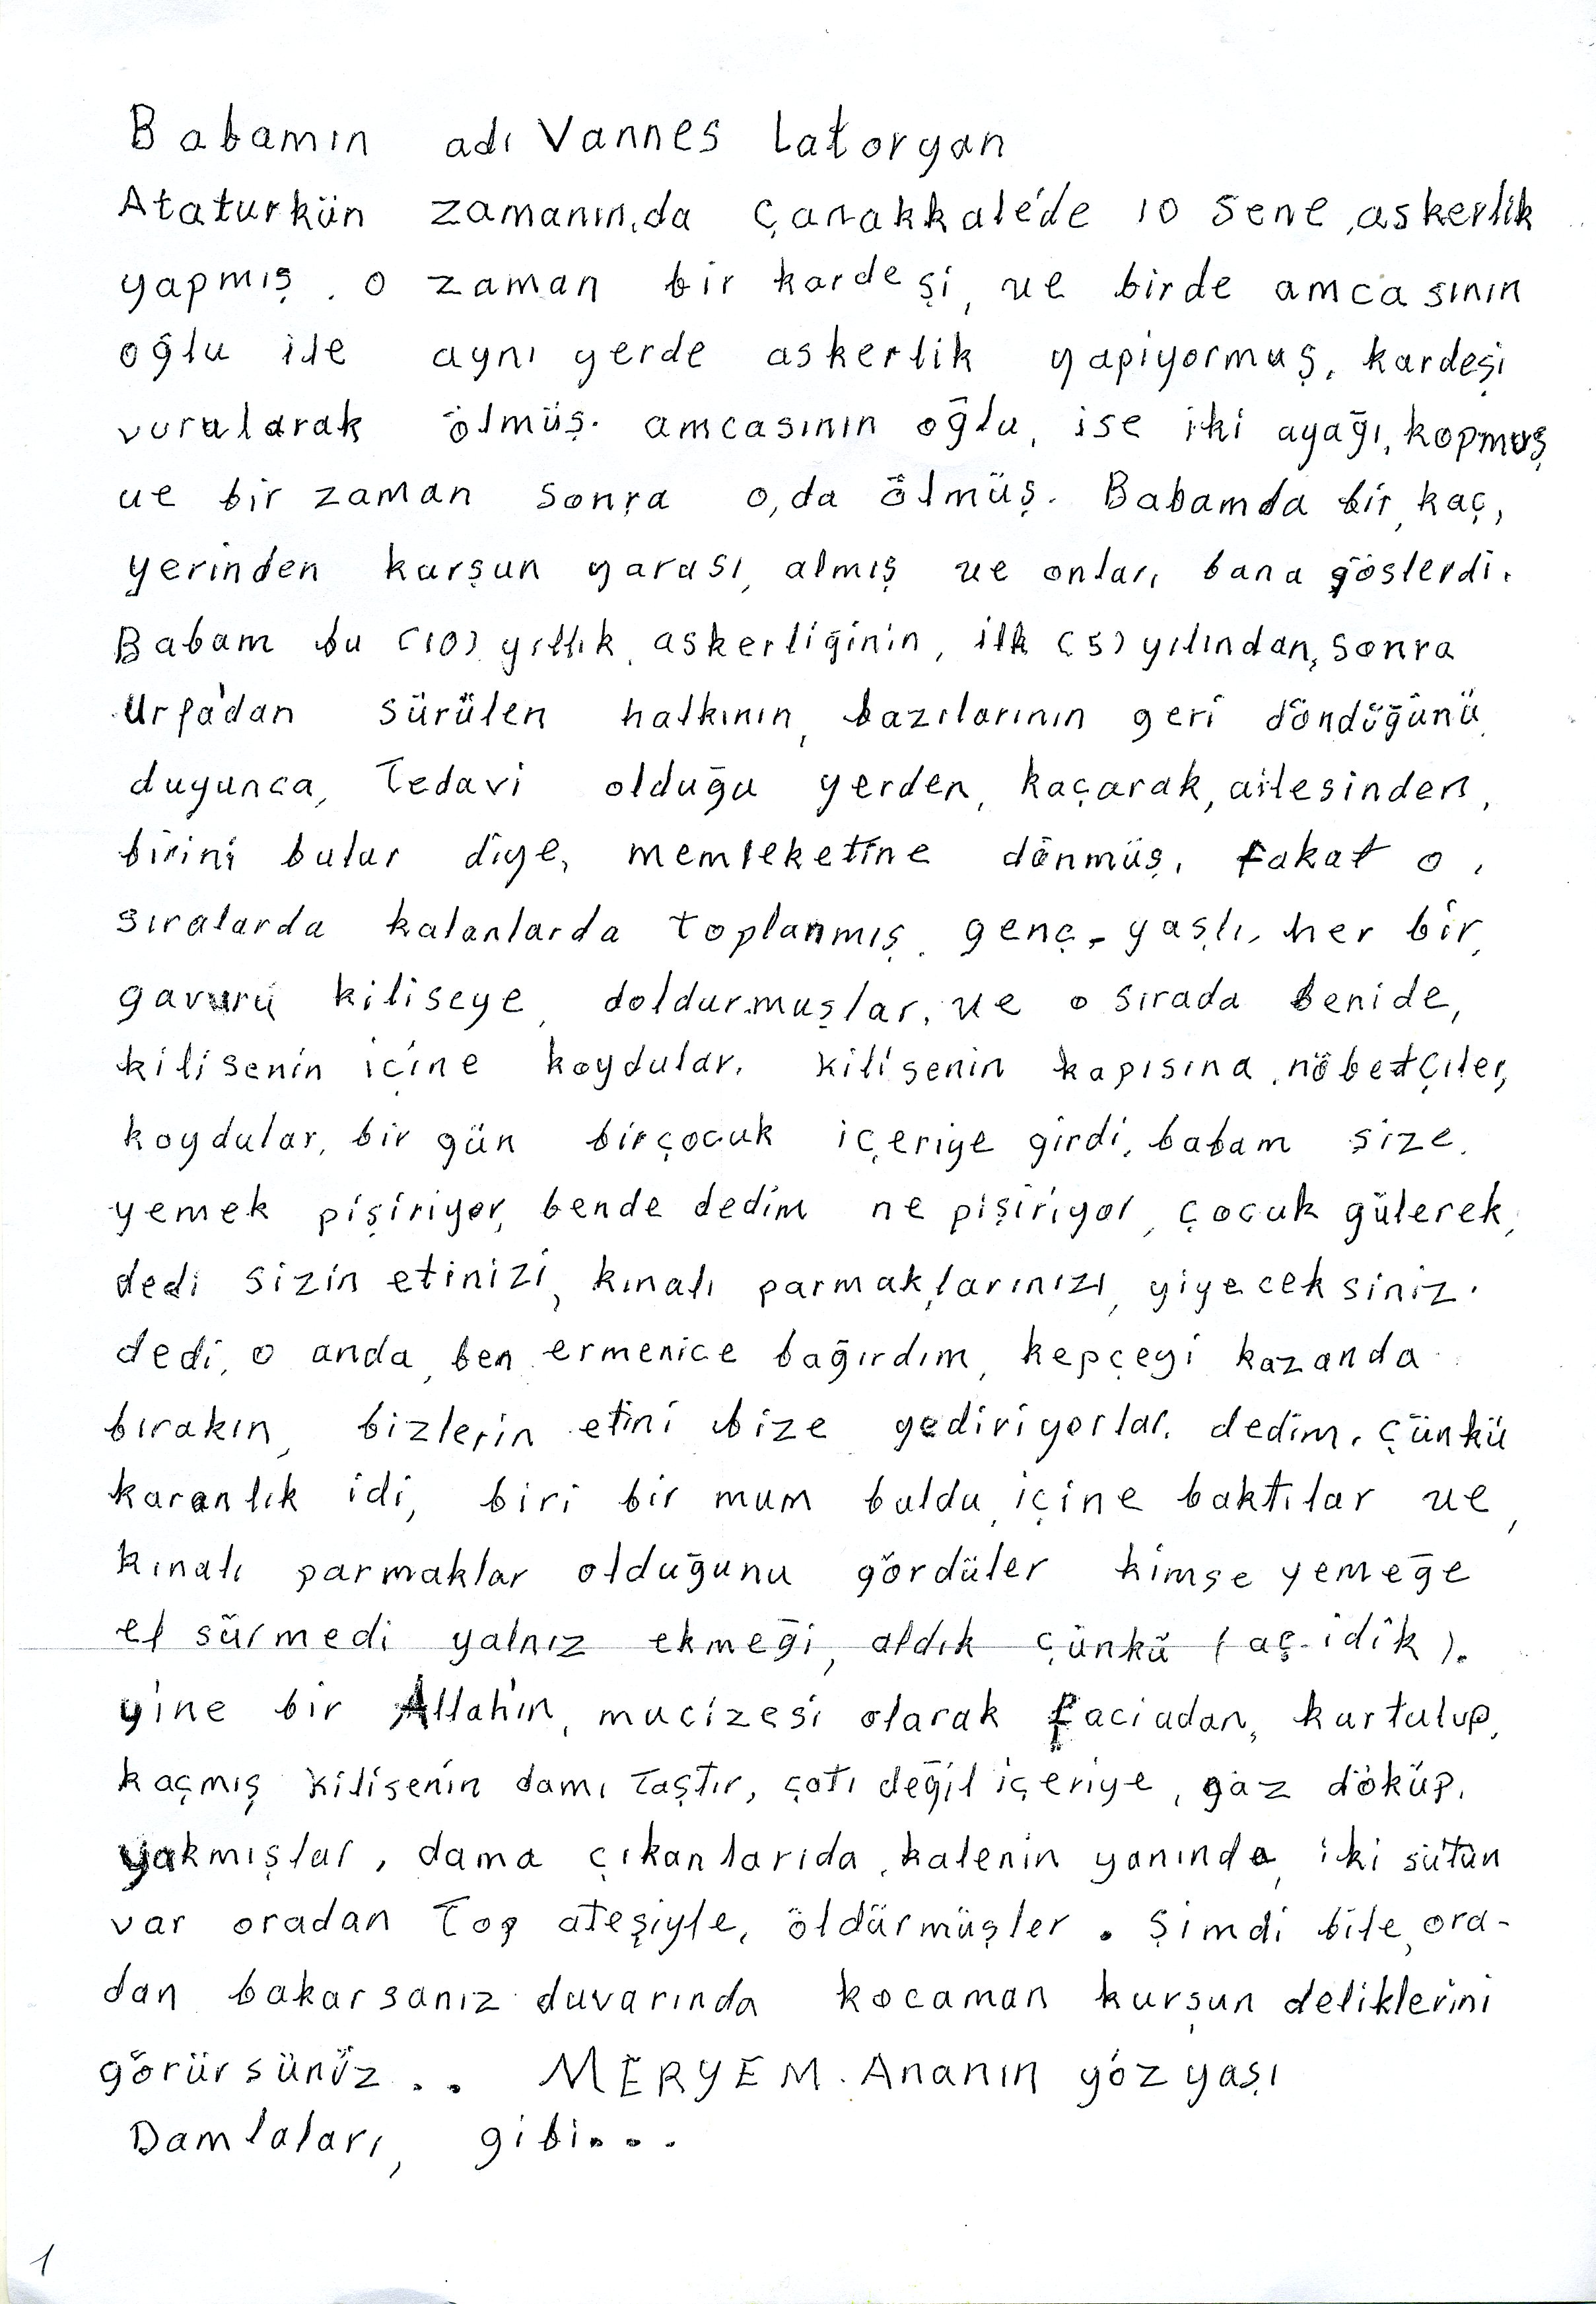 Babamın adı Vannes Latoryan
Ataturkün zamanın,da Çanakkale'de 10 sene, askerlik
yapmış. o zaman bir kardeşi, ve birde amcasının
oğlu ile aynı yerde askerlik yapiyormuş, kardeşi
vurularak ölmüş. amcasının oğlu, ise iki ayağı, kopmuş
ve bir zaman sonra o,da ölmüş. Babamda bir, kaç,
yerinden kurşun yarası, almış ve onları bana gösterdi.
Babam bu (10) yıllık, askerliğinin, ilk (5) yılından, sonra
Urfa'dan sürülen halkının, bazılarının geri döndüğünü,
duyunca, Tedavi olduğu yerden, kaçarak, ailesinden,
birini bulur diye, memleketine dönmüş, fakat o,
sıralarda kalanlarda toplanmış. genç - yaşlı, her bir,
gavuru kiliseye, doldurmuşlar, ve o sırada benide,
kilisenin içine koydular. kilisenin kapısına, nöbetçiler,
koydular, bir gün birçocuk içeriye girdi, babam size,
yemek pişiriyor, bende dedim ne pişiriyor, çocuk gülerek,
dedi sizin etinizi, kınalı parmaklarınızı, yiyeceksiniz.
dedi, o anda, ben ermenice bağırdım, kepçeyi kazanda
bırakın, bizlerin etini bize yediriyorlar. dedim. çünkü
karanlık idi, biri bir mum buldu, içine baktılar ve,
kınalı parmaklar olduğunu gördüler kimse yemeğe
el sürmedi yalnız ekmeği, aldık çünkü (aç-idik).
yine bir Allah'ın, mucizesi olarak faciadan, kurtulup,
kaçmış kilisenin damı Taştır, çatı değil içeriye, gaz döküp,
yakmışlar, dama çıkanlarıda, kalenin yanında, iki sütun
var oradan Top ateşiyle, öldürmüşler. Şimdi bile, ora-
dan bakarsanız duvarında kocaman kurşun deliklerini
görürsünüz.. MERYEM. Ananın göz yaşı
Damlaları, gibi...
1